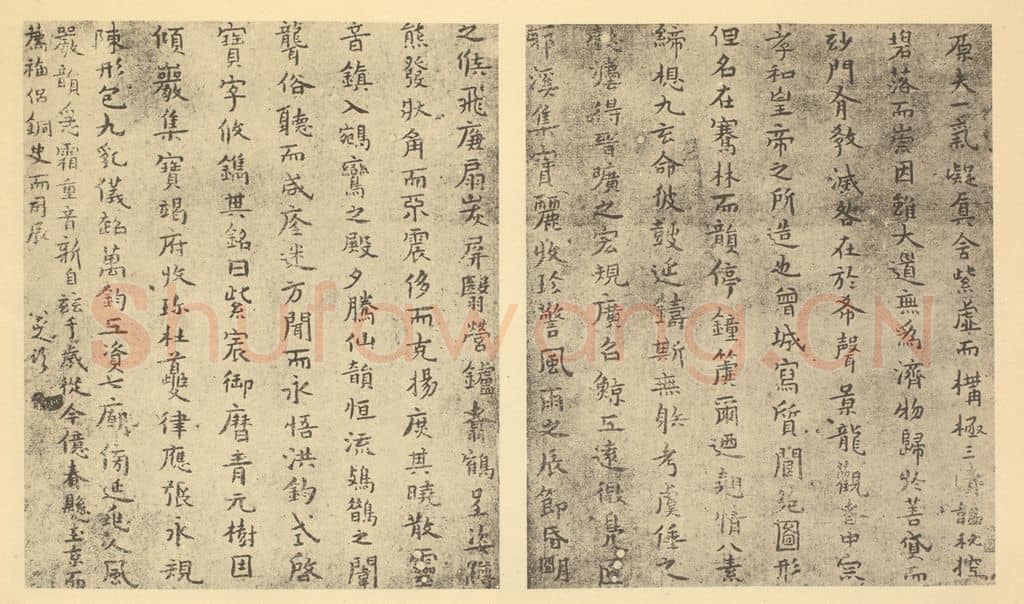 原夫一氣凝真含紫虛而構極三清韞秘控
碧落而崇因雖大道無為濟物歸於善貸而
妙門有教滅咎在於希聲景龍觀者中宗
孝和皇帝之所造也曾城寫質閬苑圖形
但名在騫林而韻停鐘虡爾迺翹情八素
締想九玄命彼鼓延鑄斯無射考虞倕之
懿灋得晉曠之宏規廣召鯨工遠徵鳧匠
耶溪集寶麗收珍警風雨之辰節昏明
之候飛廉扇炭屏翳營鑪翥鶴呈姿蹲
熊發狀角而不震侈而克揚庶其曉散靈
音鎮入鵷鸞之殿夕騰仙韻恒流鳷鵲之闈
聾俗聽而咸痊迷方聞而永悟洪鈞式啓
寶字攸鐫其銘曰紫宸御曆青元樹因
傾巖集寶竭府收珍杜夔律應張永規
陳形包九乳儀超萬鈞上資七廟傍延兆人風
嚴韻急霜重音新自茲千歲從今億春懸玉京而
薦福侶銅史而司辰
Shufawang.CN